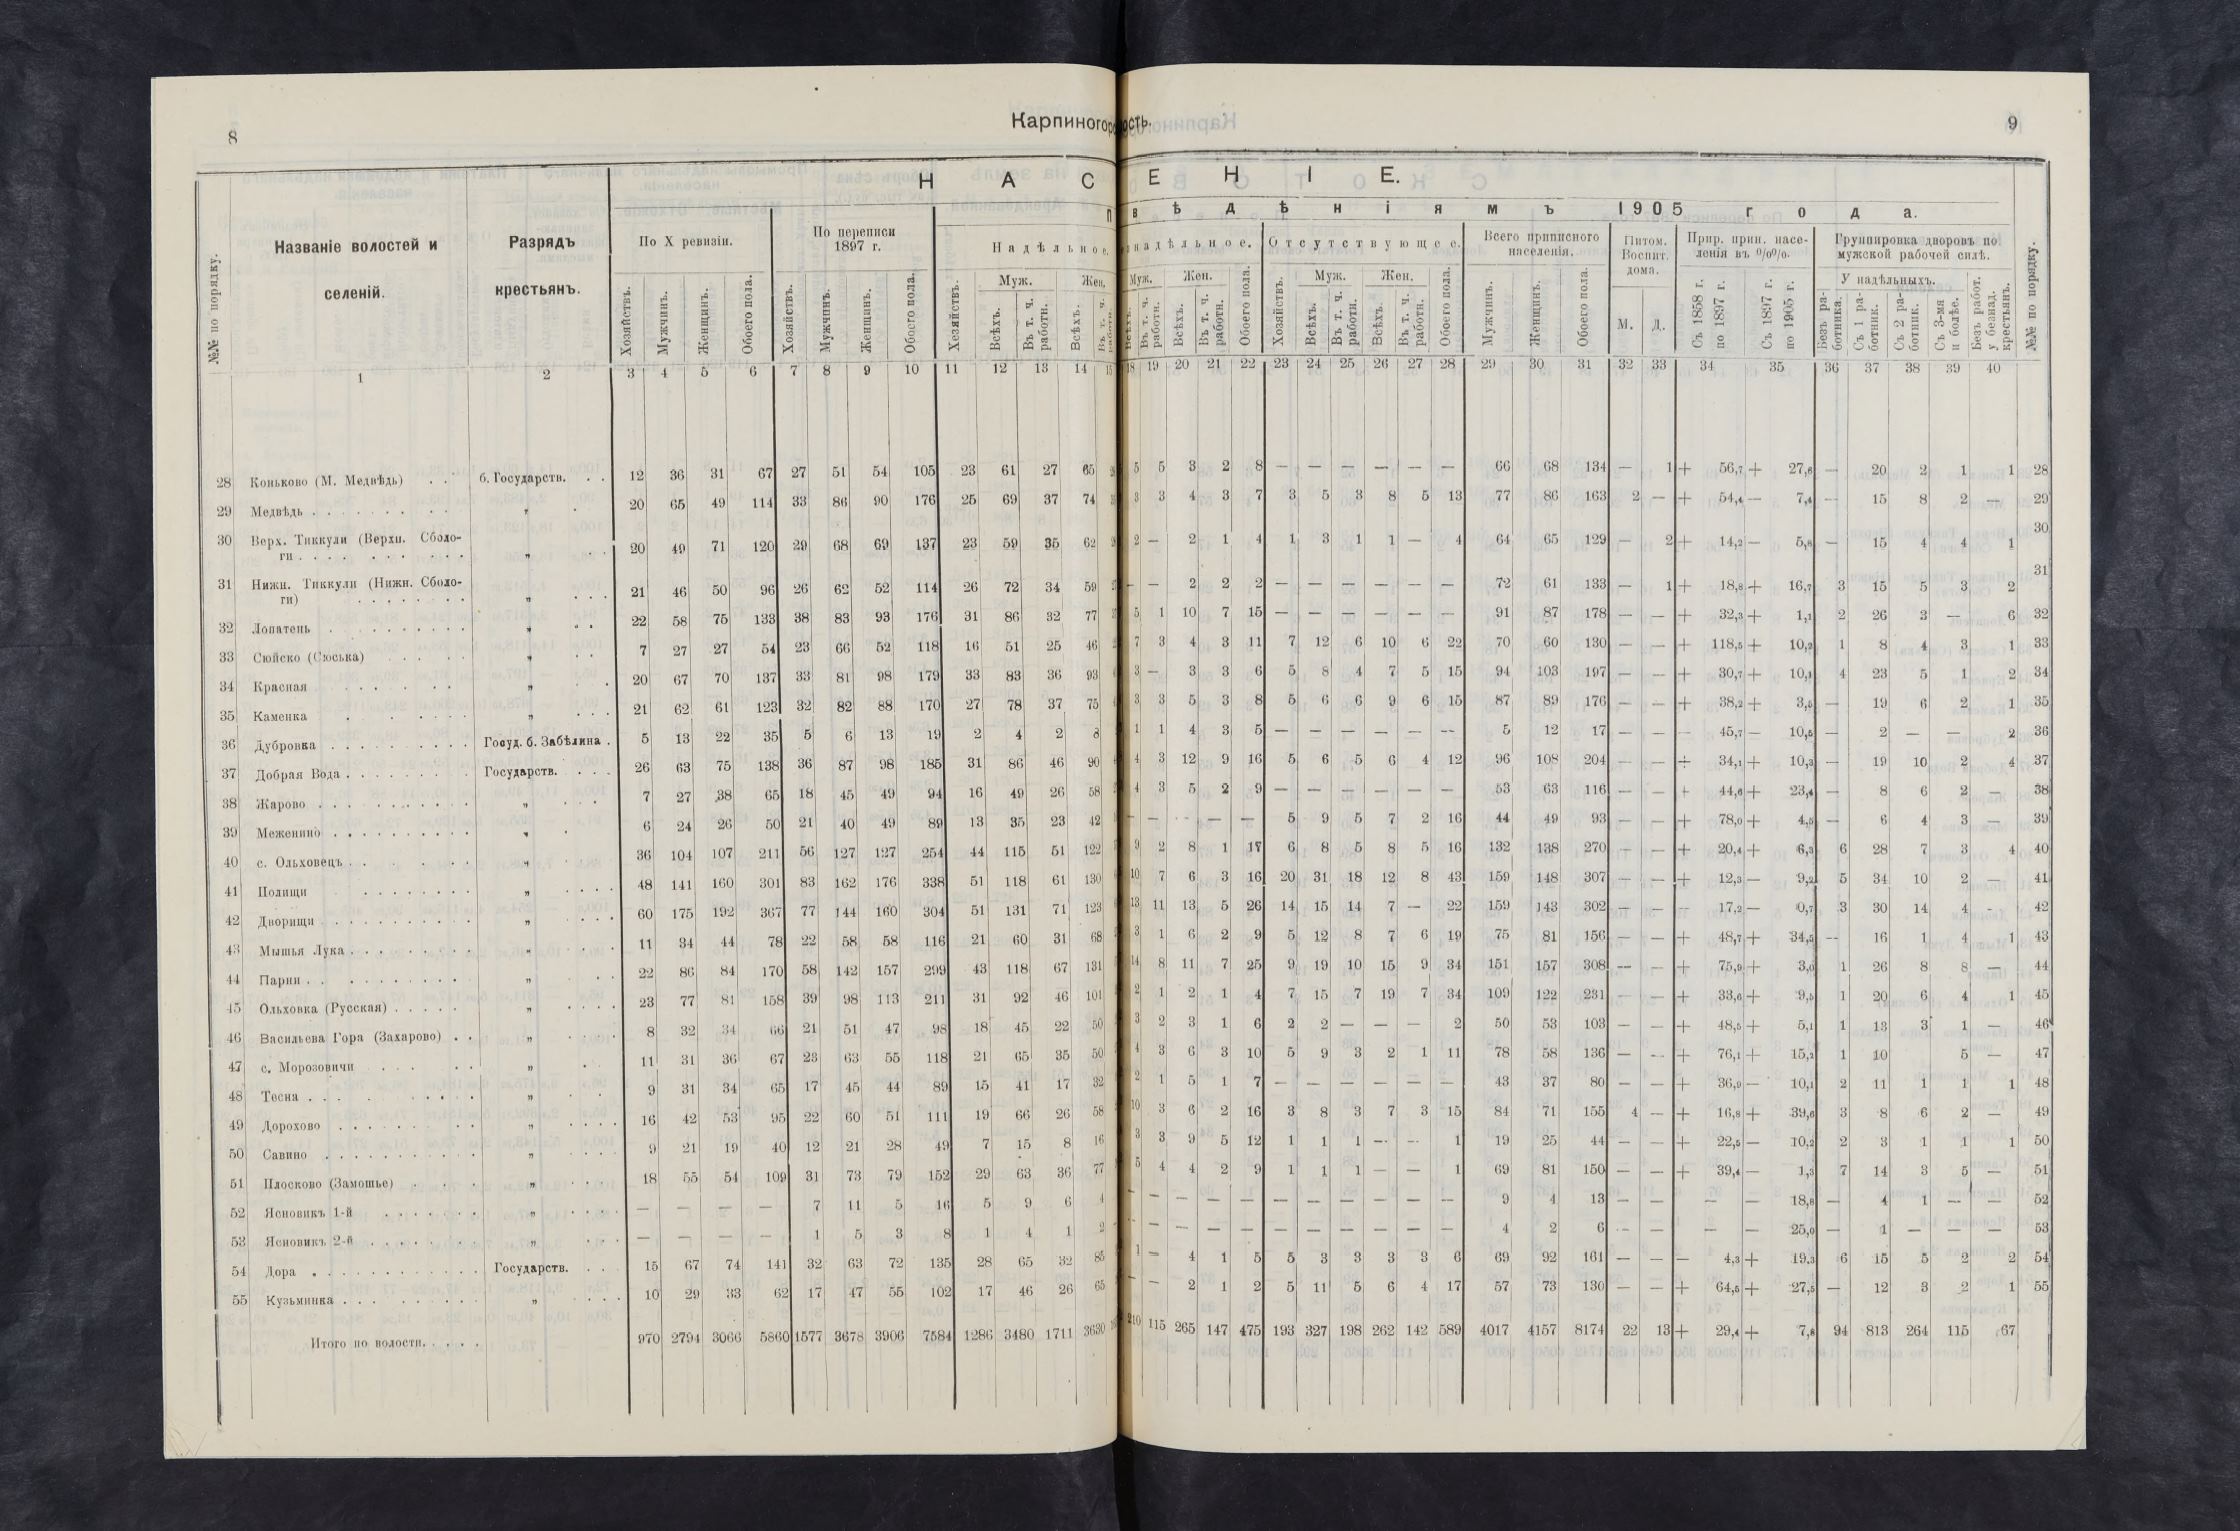 8
Карпиногор
ость.
9
Н А С Е Н І Е.
П в ѣ д ѣ н і я м ъ 1905 г о д а.
№№ по порядку. Названіе волостей и селеній. Разрядъ крестьянъ. По X ревизіи. По переписи 1897 г. Надѣльное. надѣльное. Отсутствующее. Всего приписного населенія. Питом. Воспит. дома. Прир. прип. населенія въ %%. Группировка дворовъ по мужской рабочей силѣ. №№ по порядку.
Муж. Жен. Муж. Жен. Муж. Жен. У надѣльныхъ.
Хозяйствъ. Мужчинъ. Женщинъ. Обоего пола. Хозяйствъ. Мужчинъ. Женщинъ. Обоего пола. Хозяйствъ. Всѣхъ. Въ т. ч. работн. Всѣхъ. Въ т. ч. работн. Всѣхъ. Въ т. ч. работн. Всѣхъ. Въ т. ч. работн. Обоего пола. Хозяйствъ. Всѣхъ. Въ т. ч. работн. Всѣхъ. Въ т. ч. работн. Обоего пола. Мужчинъ. Женщинъ. Обоего пола. М. Д. Съ 1858 г. по 1897 г. Съ 1897 г. по 1905 г. Безъ работника. Съ 1 работник. Съ 2 работник. Съ 3-мя и болѣе. Безъ работ. у безнад. крестьянъ.
1 2 3 4 5 6 7 8 9 10 11 12 13 14 15 18 19 20 21 22 23 24 25 26 27 28 29 30 31 32 33 34 35 36 37 38 39 40
28 Коньково (М. Медвѣдь) . . б. Государств. . . 12 36 31 67 27 51 54 105 23 61 27 65 5 5 3 2 8 — — — — — — 66 68 134 — 1 + 56,7 + 27,6 — 20 2 1 1 28
29 Медвѣдь . . . „ 20 65 49 114 33 86 90 176 25 69 37 74 3 3 4 3 7 3 5 3 8 5 13 77 86 163 2 — + 54,4 — 7,4 — 15 8 2 — 29
30 Верх. Тиккули (Верхн. Сболо-
ги . . . „ 20 49 71 120 29 68 69 137 23 59 35 62 2 — 2 1 4 1 3 1 1 — 4 64 65 129 — 2 + 14,2 — 5,8 — 15 4 4 1 30
31 Нижн. Тиккули (Нижн. Сболо-
ги) . . . „ 21 46 50 96 26 62 52 114 26 72 34 59 — — 2 2 2 — — — — — — 72 61 133 — 1 + 18,8 + 16,7 3 15 5 3 2 31
32 Лопатень . . . „ 22 58 75 133 38 83 93 176 31 86 32 77 5 1 10 7 15 — — — — — — 91 87 178 — — + 32,3 + 1,1 2 26 3 — 6 32
33 Сюйско (Сюська) . . . „ 7 27 27 54 23 66 52 118 16 51 25 46 7 3 4 3 11 7 12 6 10 6 22 70 60 130 — — + 118,5 + 10,2 1 8 4 3 1 33
34 Красная . . . „ 20 67 70 137 33 81 98 179 33 83 36 93 3 — 3 3 6 5 8 4 7 5 15 94 103 197 — — + 30,7 + 10,1 4 23 5 1 2 34
35 Каменка . . . „ 21 62 61 123 32 82 88 170 27 78 37 75 3 3 5 3 8 5 6 6 9 6 15 87 89 176 — — + 38,2 + 3,5 — 19 6 2 1 35
36 Дубровка . . . Госуд. б. Забѣлина . 5 13 22 35 5 6 13 19 2 4 2 8 1 1 4 3 5 — — — — — — 5 12 17 — — — 45,7 — 10,5 — 2 — — 2 36
37 Добрая Вода . . . Государств. . . . 26 63 75 138 36 87 98 185 31 86 46 90 4 3 12 9 16 5 6 5 6 4 12 96 108 204 — — + 34,1 + 10,3 — 19 10 2 4 37
38 Жарово . . . „ 7 27 38 65 18 45 49 94 16 49 26 58 4 3 5 2 9 — — — — — — 53 63 116 — — + 44,6 + 23,4 — 8 6 2 — 38
39 Меженино . . . „ 6 24 26 50 21 40 49 89 13 35 23 42 — — — — 5 9 5 7 2 16 44 49 93 — — + 78,0 + 4,5 — 6 4 3 — 39
40 с. Ольховецъ . . . „ 36 104 107 211 56 127 127 254 44 115 51 122 9 2 8 1 17 6 8 5 8 5 16 132 138 270 — — + 20,4 + 6,3 6 28 7 3 4 40
41 Полищи . . . „ 48 141 160 301 83 162 176 338 51 118 61 130 10 7 6 3 16 20 31 18 12 8 43 159 148 307 — — + 12,3 — 9,2 5 34 10 2 — 41
42 Дворищи . . . „ 60 175 192 367 77 144 160 304 51 131 71 123 13 11 13 5 26 14 15 14 7 — 22 159 143 302 — — — 17,2 — 0,7 3 30 14 4 - 42
43 Мышья Лука . . . „ 11 34 44 78 22 58 58 116 21 60 31 68 3 1 6 2 9 5 12 8 7 6 19 75 81 156 — — + 48,7 + 34,5 — 16 1 4 1 43
44 Парни . . . „ 22 86 84 170 58 142 157 299 43 118 67 131 14 8 11 7 25 9 19 10 15 9 34 151 157 308 — — + 75,9 + 3,0 1 26 8 8 — 44
45 Ольховка (Русская) . . . „ 23 77 81 158 39 98 113 211 31 92 46 101 2 1 2 1 4 7 15 7 19 7 34 109 122 231 — — + 33,6 + 9,5 1 20 6 4 1 45
46 Васильева Гора (Захарово) . . „ 8 32 34 66 21 51 47 98 18 45 22 50 3 2 3 1 6 2 2 — — — 2 50 53 103 — — + 48,5 + 5,1 1 13 3 1 — 46
47 с. Морозовичи . . . „ 11 31 36 67 23 63 55 118 21 65 35 50 4 3 6 3 10 5 9 3 2 1 11 78 58 136 — — + 76,1 + 15,2 1 10 5 — 47
48 Тесна . . . „ 9 31 34 65 17 45 44 89 15 41 17 32 2 1 5 1 7 — — — — — — 43 37 80 — — + 36,9 — 10,1 2 11 1 1 1 48
49 Дорохово . . . „ 16 42 53 95 22 60 51 111 19 66 26 58 10 3 6 2 16 3 8 3 7 3 15 84 71 155 4 — + 16,8 + 39,6 3 8 6 2 — 49
50 Савино . . . „ 9 21 19 40 12 21 28 49 7 15 8 16 3 3 9 5 12 1 1 1 — — 1 19 25 44 — — + 22,5 — 10,2 2 3 1 1 1 50
51 Плосково (Замошье) . . . „ 18 55 54 109 31 73 79 152 29 63 36 77 5 4 4 2 9 1 1 1 — — 1 69 81 150 — — + 39,4 — 1,3 7 14 3 5 — 51
52 Ясновикъ 1-й . . . „ — — — — 7 11 5 16 5 9 6 4 — — — — — — — — — — — 9 4 13 — — — — 18,8 — 4 1 — — 52
53 Ясновикъ 2-й . . . „ — — — — 1 5 3 8 1 4 1 2 — — — — — — — — — — — 4 2 6 — — — — 25,0 — 1 — — — 53
54 Дора . . . Государств. . . . 15 67 74 141 32 63 72 135 28 65 32 85 1 — 4 1 5 5 3 3 3 3 6 69 92 161 — — — 4,3 + 19,3 6 15 5 2 2 54
55 Кузьминка . . . „ 10 29 33 62 17 47 55 102 17 46 26 65 — — 2 1 2 5 11 5 6 4 17 57 73 130 — — + 64,5 + 27,5 — 12 3 2 1 55
Итого по волости. . . . 970 2794 3066 5860 1577 3678 3906 7584 1286 3480 1711 3630 210 115 265 147 475 193 327 198 262 142 589 4017 4157 8174 22 13 + 29,4 + 7,8 94 813 264 115 67